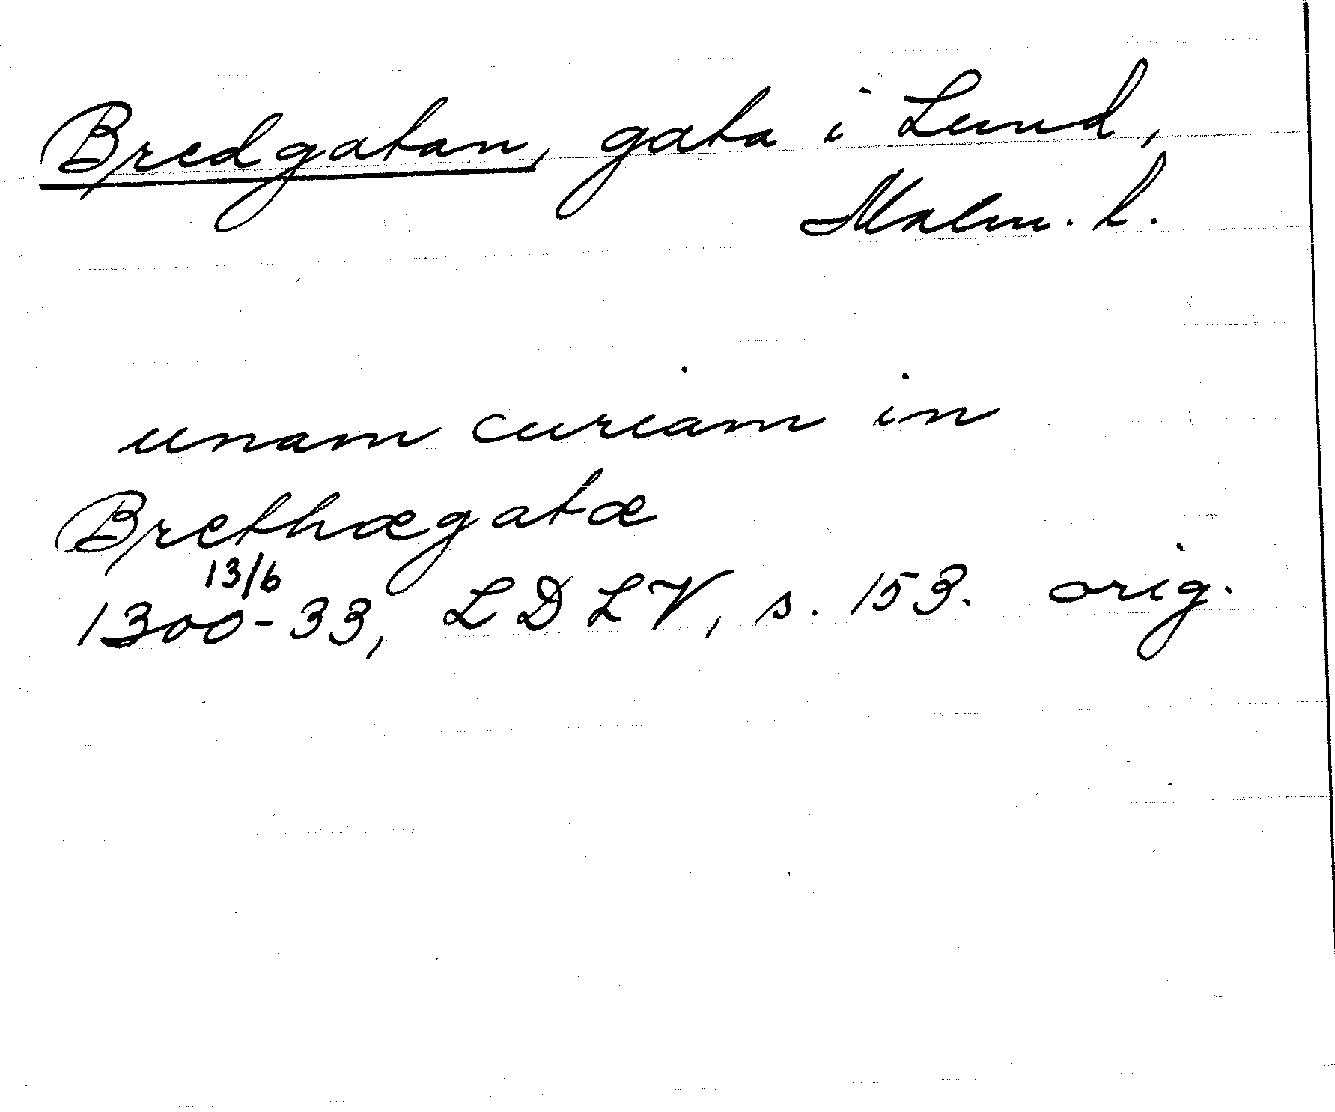 Bredgatan, gata i Lund,
Malm. l.
unam curiam in
Brethægatæ
13/6
1300-33, LDLV, s. 153. orig.